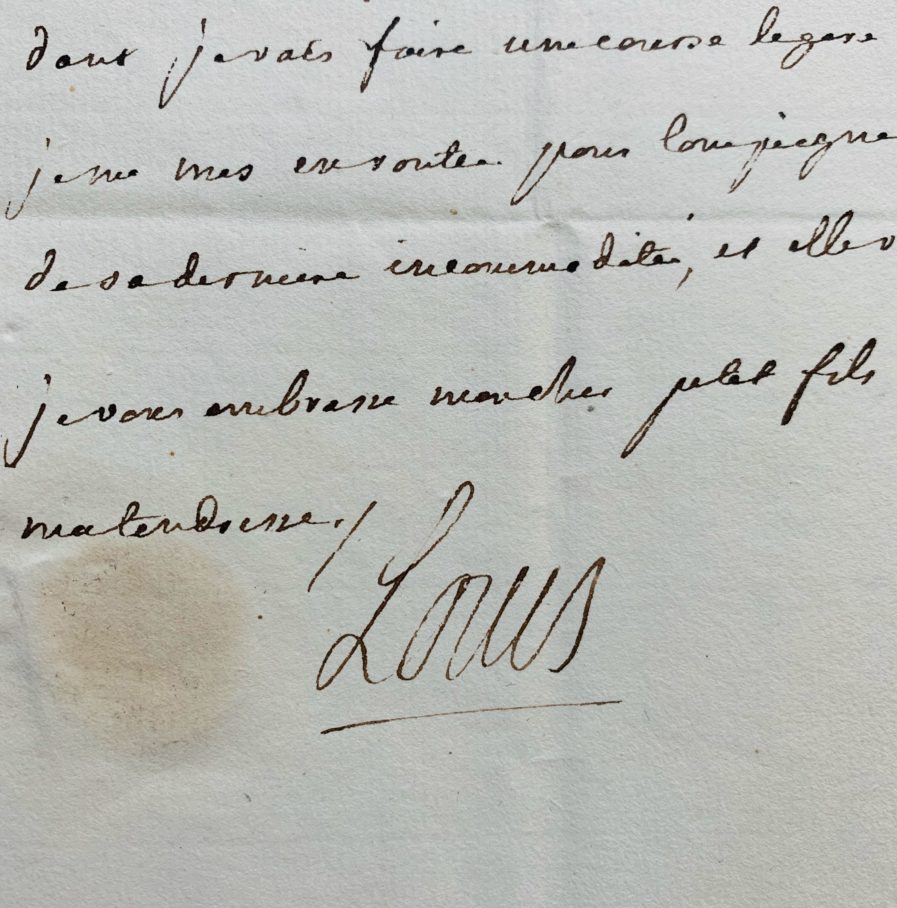 dont je vais faire une course legere
je me mes en route pour Compiegne
de sa derniere incommodité, et elle
je vous embrasse mon cher petit fils
ma tendresse./.
Louis